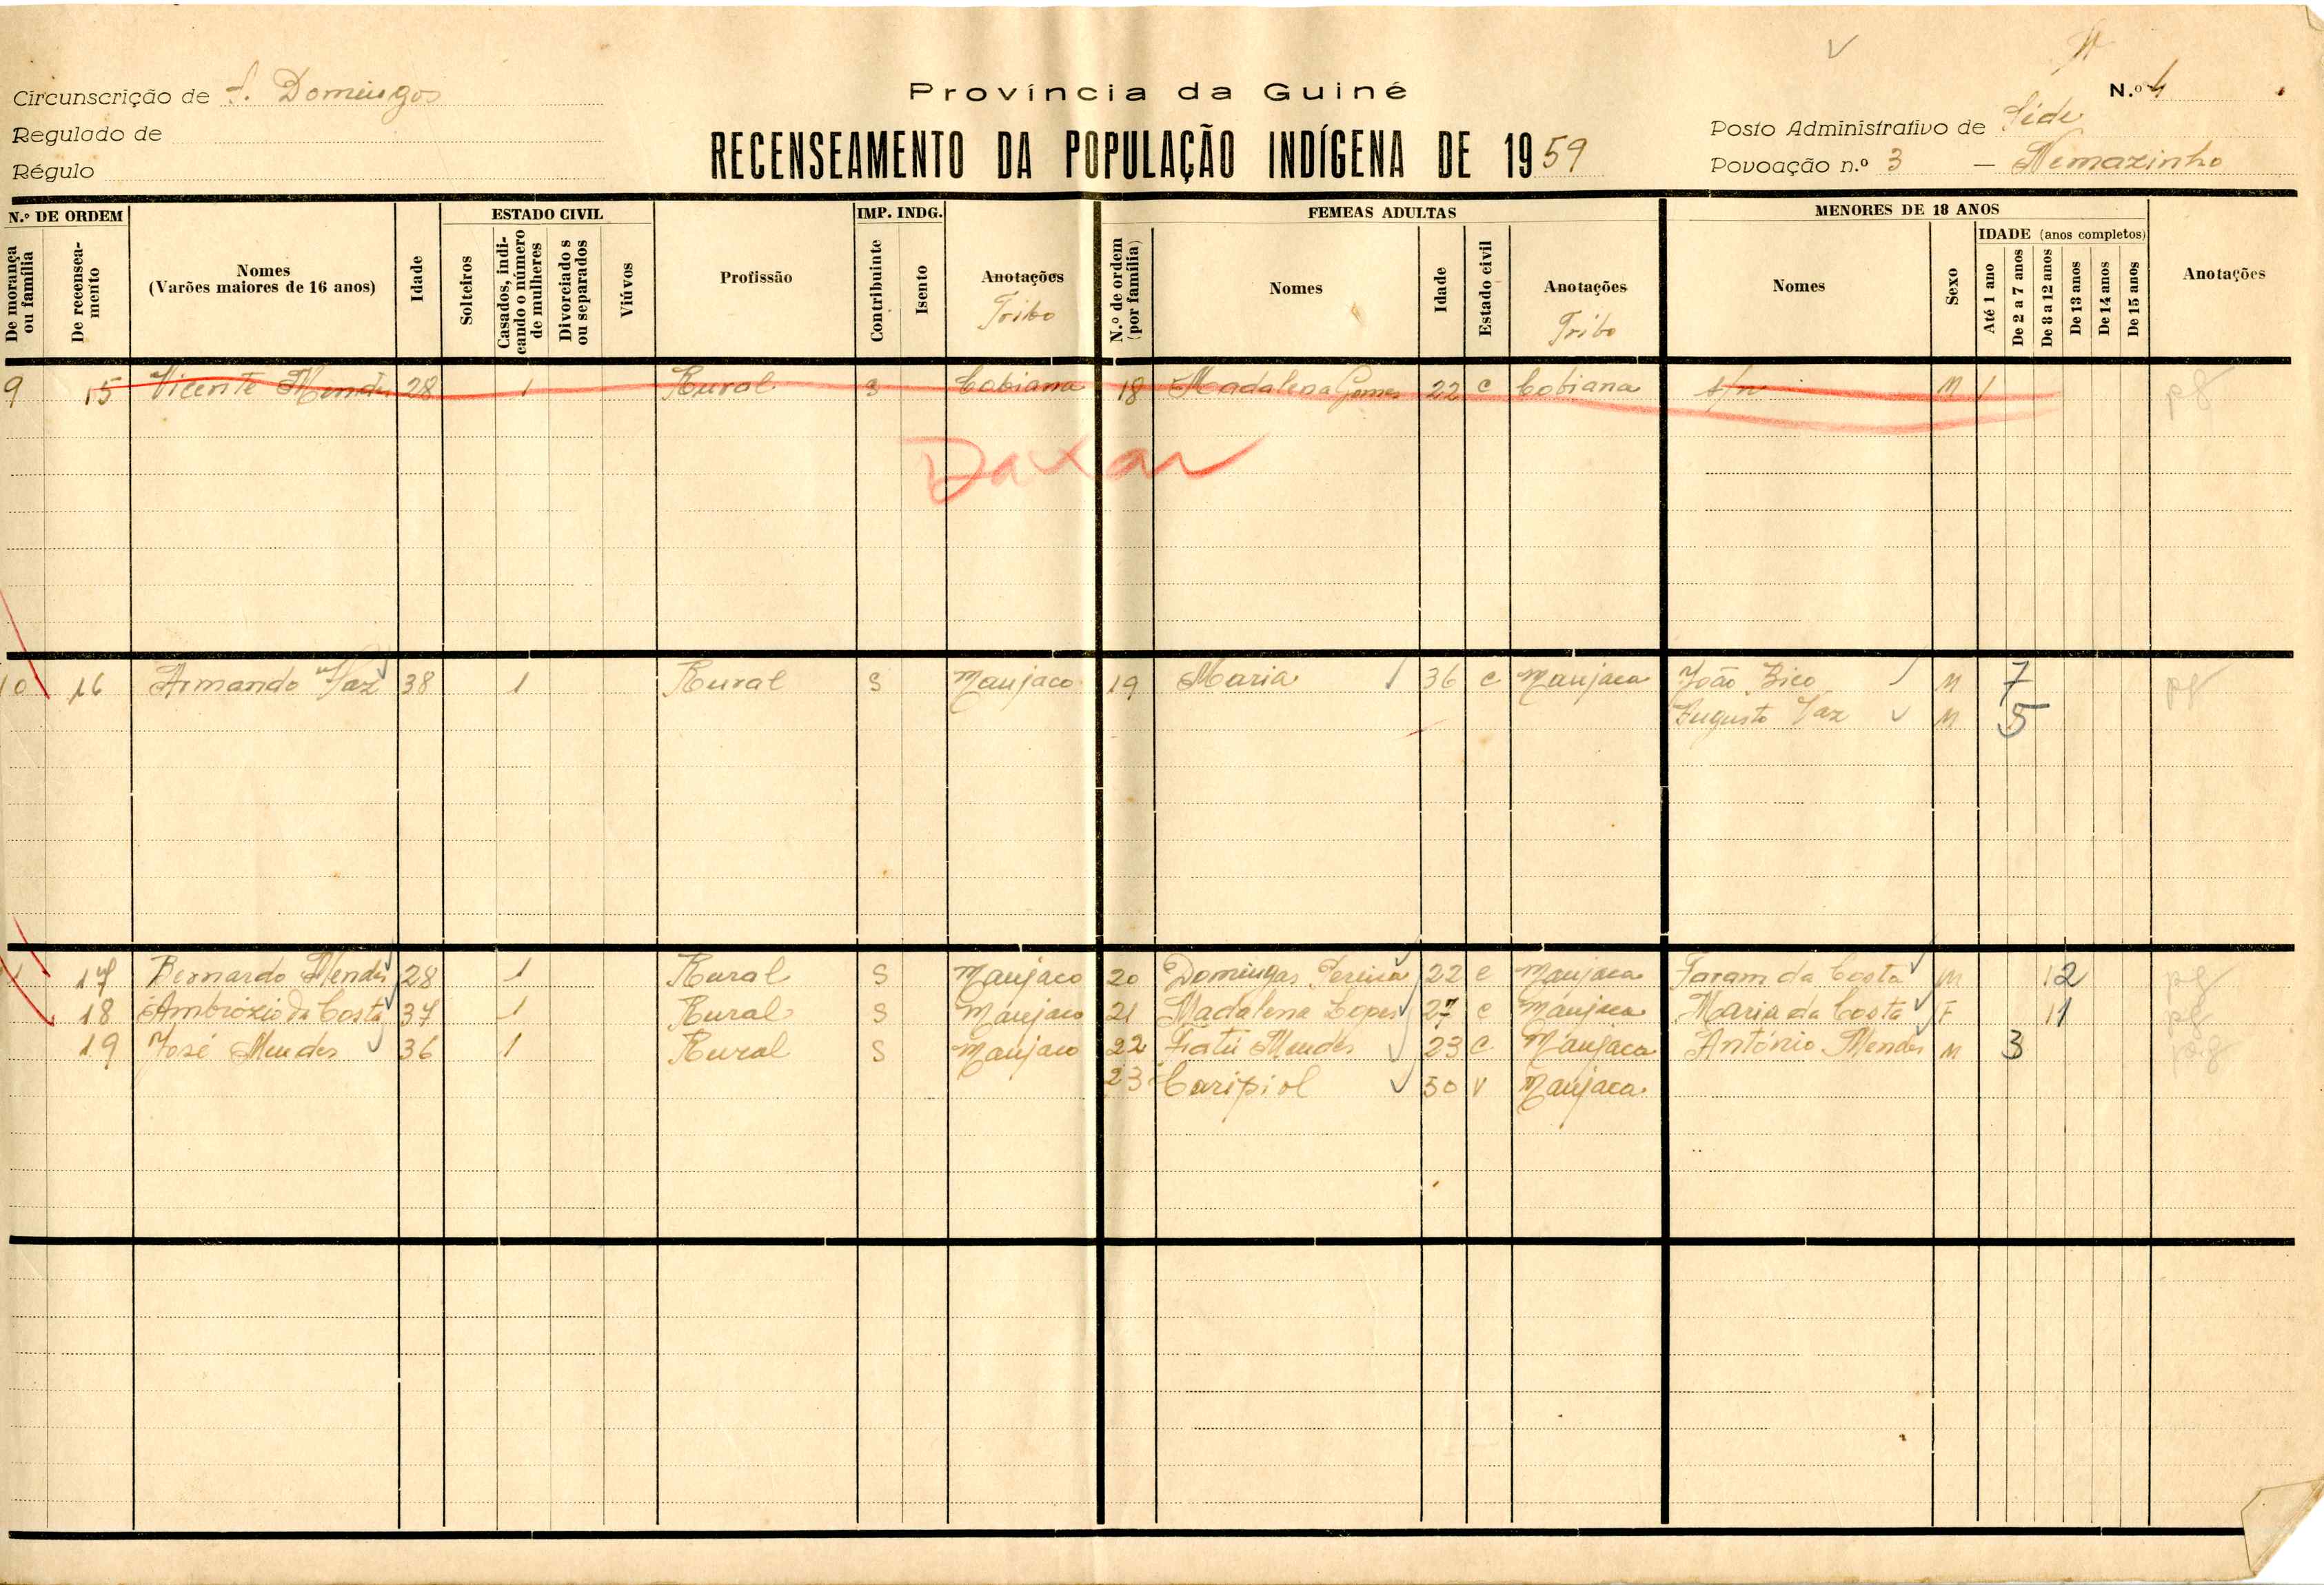 Província da Guiné
RECENSEAMENTO DA POPULAÇÃO INDÍGENA DE 1959
Circunscrição de S. Domingos
Regulado de
Régulo
N.º 4
Posto Administrativo de Séde
Povoação n.º 3 — Nemazinho
N.º DE ORDEM
De morança ou família
De recenseamento
Nomes
(Varões maiores de 16 anos)
Idade
ESTADO CIVIL
Solteiros
Casados, indicando o número de mulheres
Divorciados ou separados
Viúvos
Profissão
IMP. INDG.
Contribuinte
Isento
Anotações
Tribo
FEMEAS ADULTAS
N.º de ordem (por família)
Nomes
Idade
Estado civil
Anotações
Tribo
MENORES DE 18 ANOS
Nomes
Sexo
IDADE (anos completos)
Até 1 ano
De 2 a 7 anos
De 8 a 12 anos
De 13 anos
De 14 anos
De 15 anos
Anotações
9 15 Vicente Mendes 28 1 Rural S Cobiana 18 Madalena Gomes 22 C Cobiana s/n M 1 pg
Daxar
10 16 Armando Vaz 38 1 Rural S Manjaco 19 Maria 36 C Manjaca João Bico M 7 pg
Augusto Vaz M 5
11 17 Bernardo Mendes 28 1 Rural S Manjaco 20 Domingas Pereira 22 C Manjaca Faram da Costa M 12 pg
18 Ambrózio da Costa 37 1 Rural S Manjaco 21 Madalena Lopes 27 C Manjaca Maria da Costa F 11 pg
19 José Mendes 36 1 Rural S Manjaco 22 Fatú Mendes 23 C Manjaca António Mendes M 3 pg
23 Caripiol 50 V Manjaca